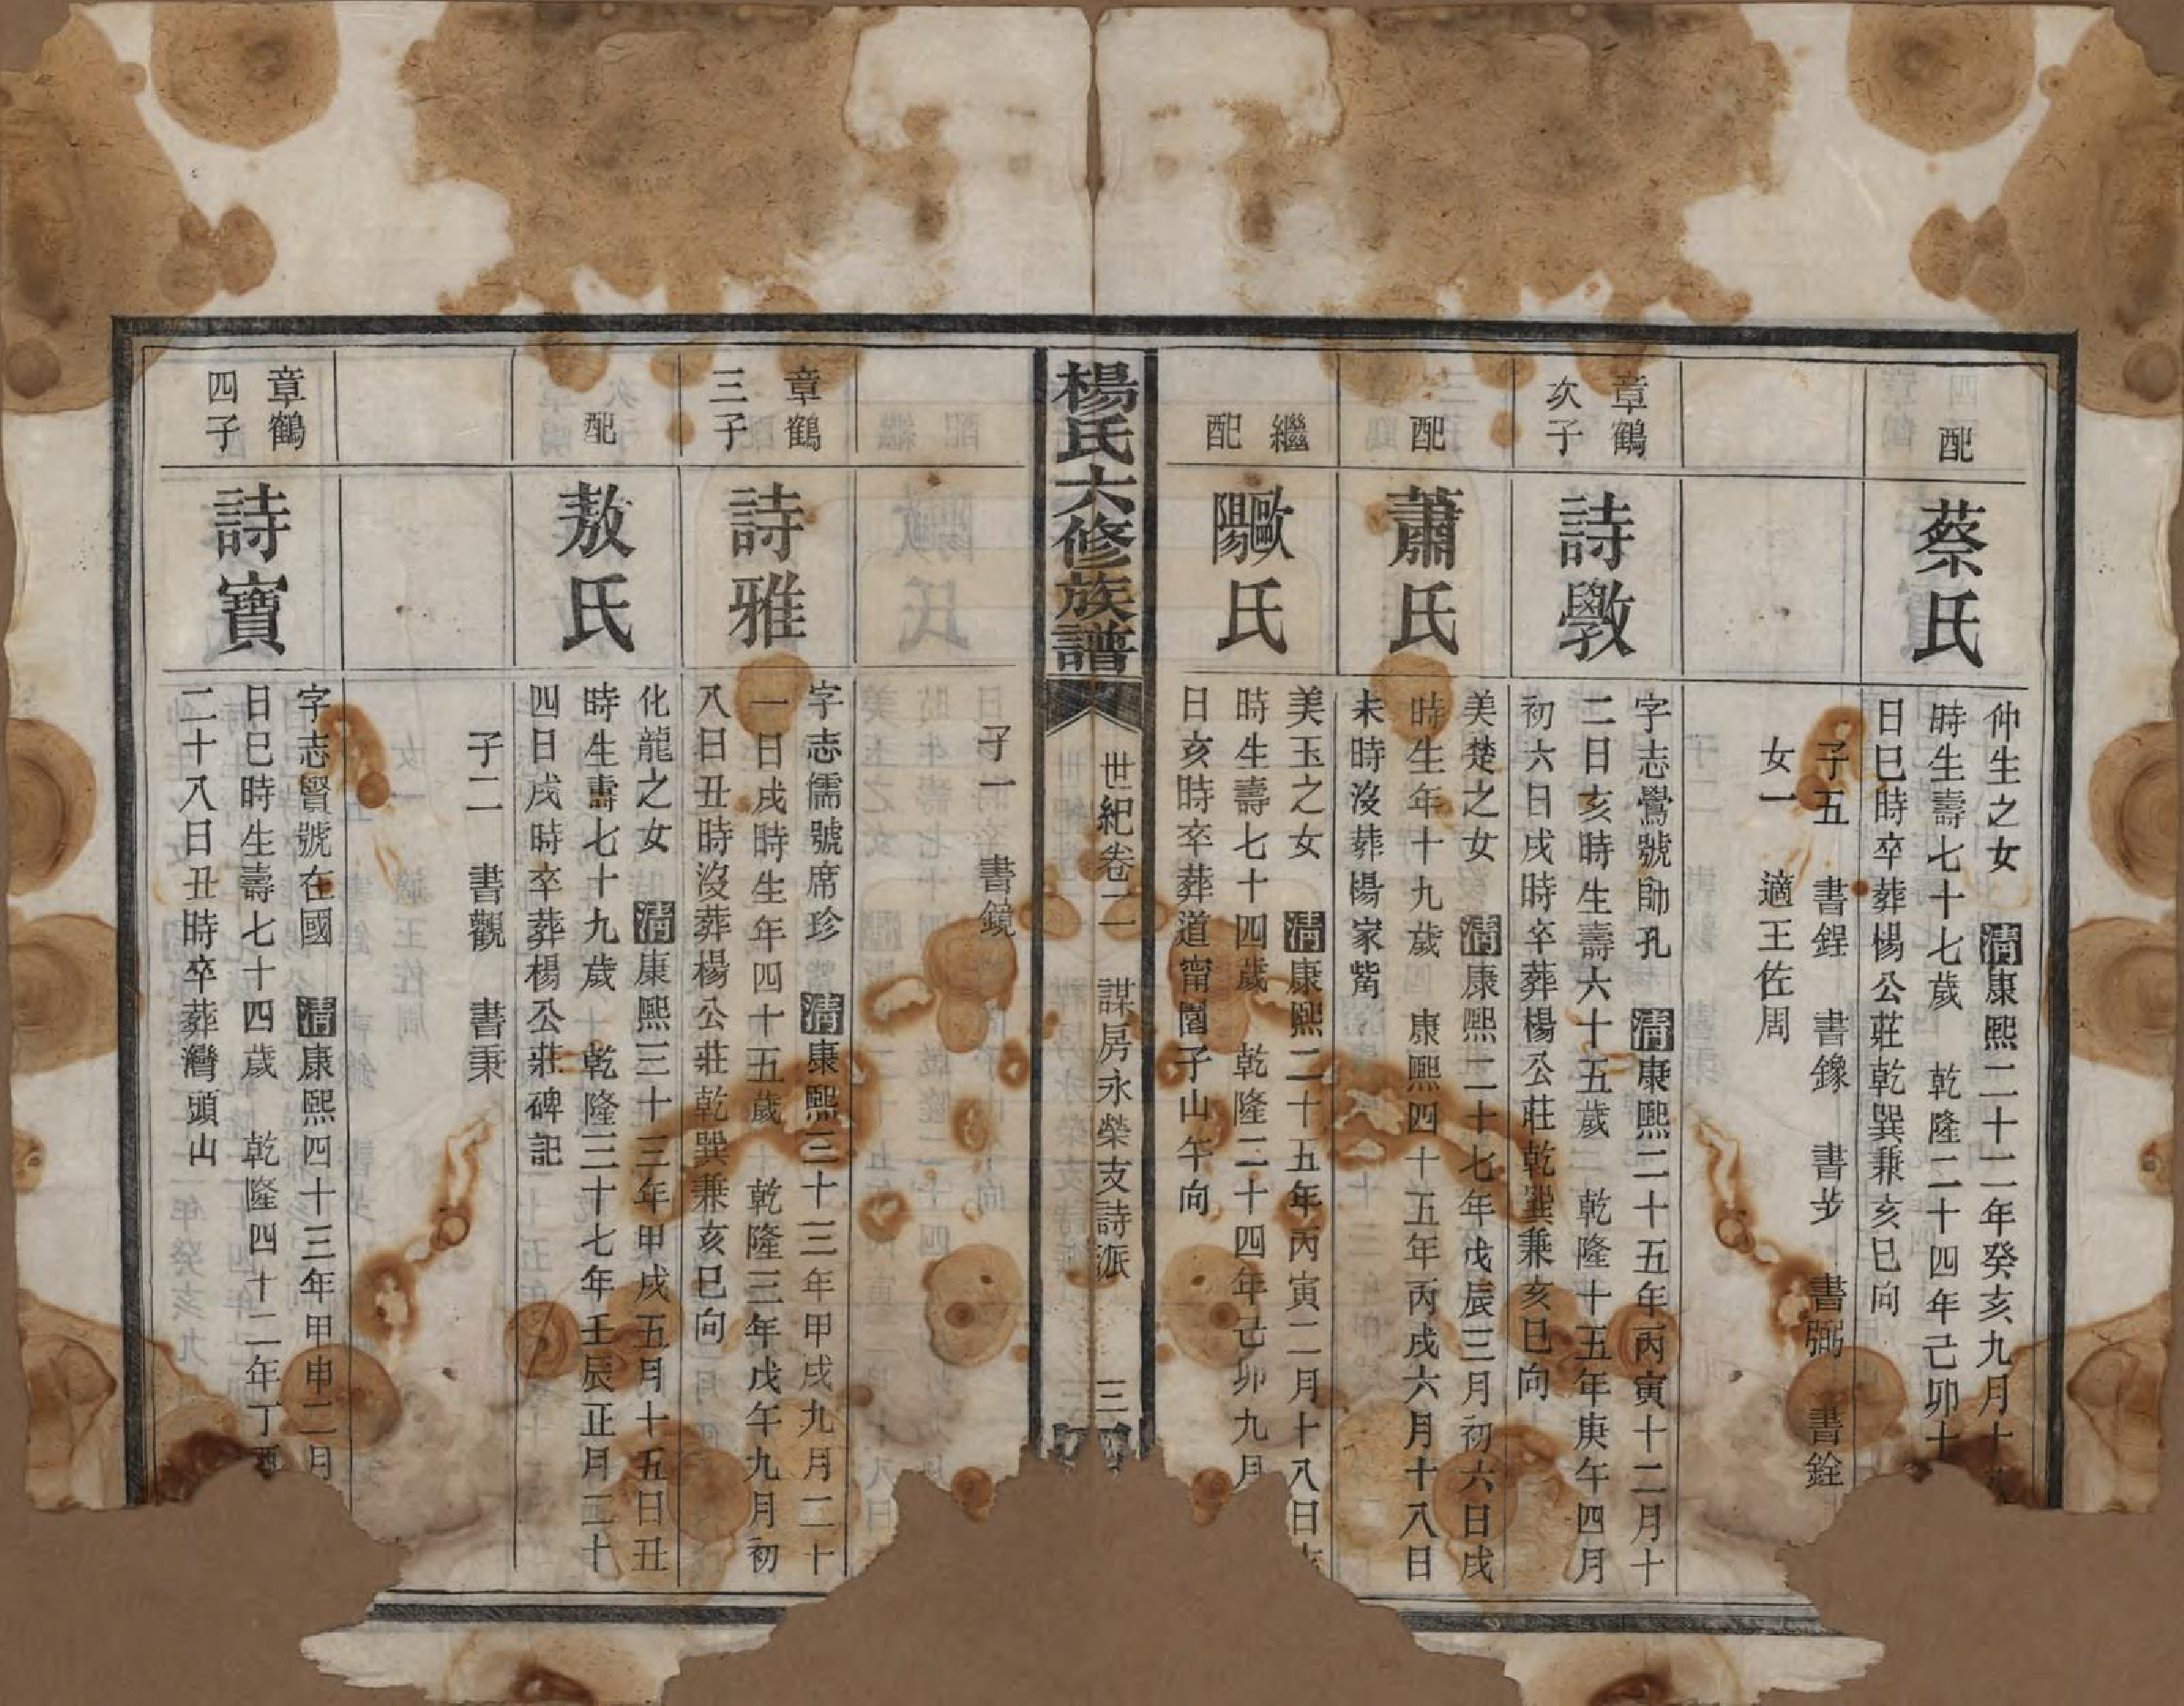 配
蔡氏
仲生之女　清康熙二十二年癸亥九月十
時生壽七十七歲　乾隆二十四年己卯十
日巳時卒葬楊公莊乾巽兼亥巳向
子五　書鋥　書鑗　書步　書弼　書銓
女一　適王佐周
章鶴
次子
詩斆
字志鸞號師孔　清康熙二十五年丙寅十二月十
二日亥時生壽六十五歲　乾隆十五年庚午四月
初六日戌時卒葬楊公莊乾巽兼亥巳向
配
蕭氏
美楚之女　清康熙二十七年戊辰三月初六日戌
時生年十九歲　康熙四十五年丙戌六月十八日
未時沒葬楊家觜
繼
配
歐陽氏
美玉之女　清康熙二十五年丙寅二月十八日
時生壽七十四歲　乾隆二十四年己卯九月
日亥時卒葬道甯園子山午向
楊氏六修族譜
世紀卷二　謀房永榮支詩派　三
子一　書鏡
章鶴
三子
詩雅
字志儒號席珍　清康熙三十三年甲戌九月二十
一日戌時生年四十五歲　乾隆三年戊午九月初
八日丑時沒葬楊公莊乾巽兼亥巳向
配
敖氏
化龍之女　清康熙三十三年甲戌五月十五日丑
時生壽七十九歲　乾隆三十七年壬辰正月二十
四日戌時卒葬楊公莊碑記
子二　書觀　書秉
章鶴
四子
詩寶
字志賢號在國　清康熙四十三年甲申二月
日巳時生壽七十四歲　乾隆四十二年丁酉
二十八日丑時卒葬灣頭山